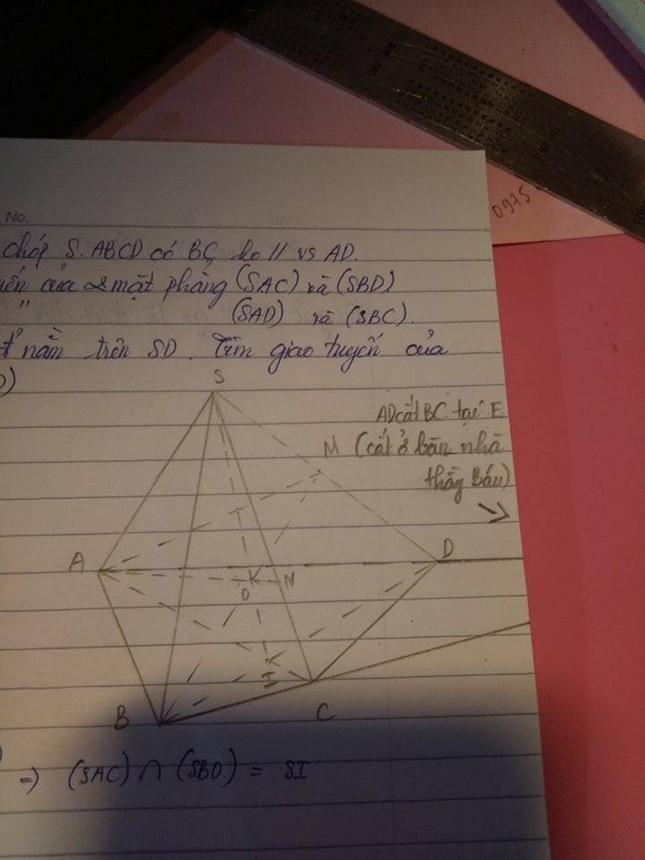 No.
0975
chóp S.ABCD có BC ko // vs AD.
yến của 2 mặt phẳng (SAC) và (SBD)
" (SAD) và (SBC).
nằm trên SD. Tìm giao tuyến của
)
S
AD cắt BC tại E
M (cắt ở bàn nhà
thằng Báu)
A
D
K N
O
I
B
C
) => (SAC) ∩ (SBD) = SI